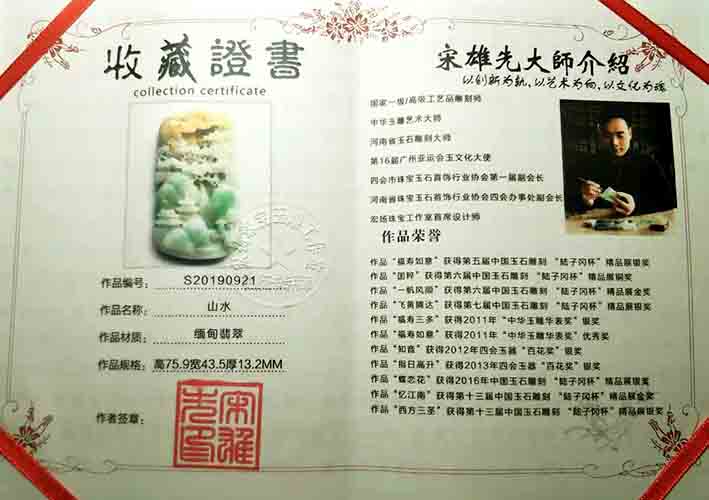 收藏證書
collection certificate
作品编号: S20190921
作品名称: 山水
作品材质: 缅甸翡翠
作品规格: 高75.9宽43.5厚13.2MM
作者签章:
宋雄先印
宋雄先大師介紹
以创新为轨,以艺术为向,以文化为魂
国家一级/高级工艺品雕刻师
中华玉雕艺术大师
河南省玉石雕刻大师
第16届广州亚运会玉文化大使
四会市珠宝玉石首饰行业协会第一届副会长
河南省珠宝玉石首饰行业协会四会办事处副会长
宏扬珠宝工作室首席设计师
作品荣誉
作品“福寿如意”获得第五届中国玉石雕刻 “陆子冈杯”精品展银奖
作品“国粹”获得第六届中国玉石雕刻 “陆子冈杯”精品展铜奖
作品“一帆风顺”获得第六届中国玉石雕刻 “陆子冈杯”精品展金奖
作品“飞黄腾达”获得第七届中国玉石雕刻 “陆子冈杯”精品展银奖
作品“福寿三多”获得2011年“中华玉雕华表奖”银奖
作品“福寿如意”获得2011年“中华玉雕华表奖”优秀奖
作品“知音”获得2012年四会玉器“百花奖”银奖
作品“指日高升”获得2013年四会玉器“百花奖”银奖
作品“蝶恋花”获得2016年中国玉石雕刻 “陆子冈杯”精品展银奖
作品“忆江南”获得第十三届中国玉石雕刻 “陆子冈杯”精品展金奖
作品“西方三圣”获得第十三届中国玉石雕刻 “陆子冈杯”精品展银奖